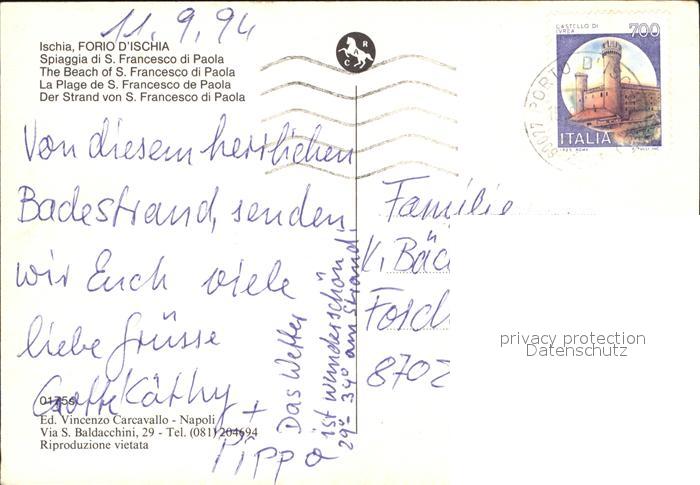 11.9.94
Ischia, FORIO D'ISCHIA
Spiaggia di S. Francesco di Paola
The Beach of S. Francesco di Paola
La Plage de S. Francesco de Paola
Der Strand von S. Francesco di Paola
CARC
CASTELLO DI
IVREA
700
ITALIA
80077 PORTO D'ISC
Von diesem herrlichen
Badestrand, senden
wir Euch viele
liebe Grüsse
Käthy
+
Pippo
Das Wetter
ist wunderschön
29°- 34° am Strand.
Familie
K. Bäc
Forch
8702
privacy protection
Datenschutz
01756
Ed. Vincenzo Carcavallo - Napoli
Via S. Baldacchini, 29 - Tel. (081) 204694
Riproduzione vietata